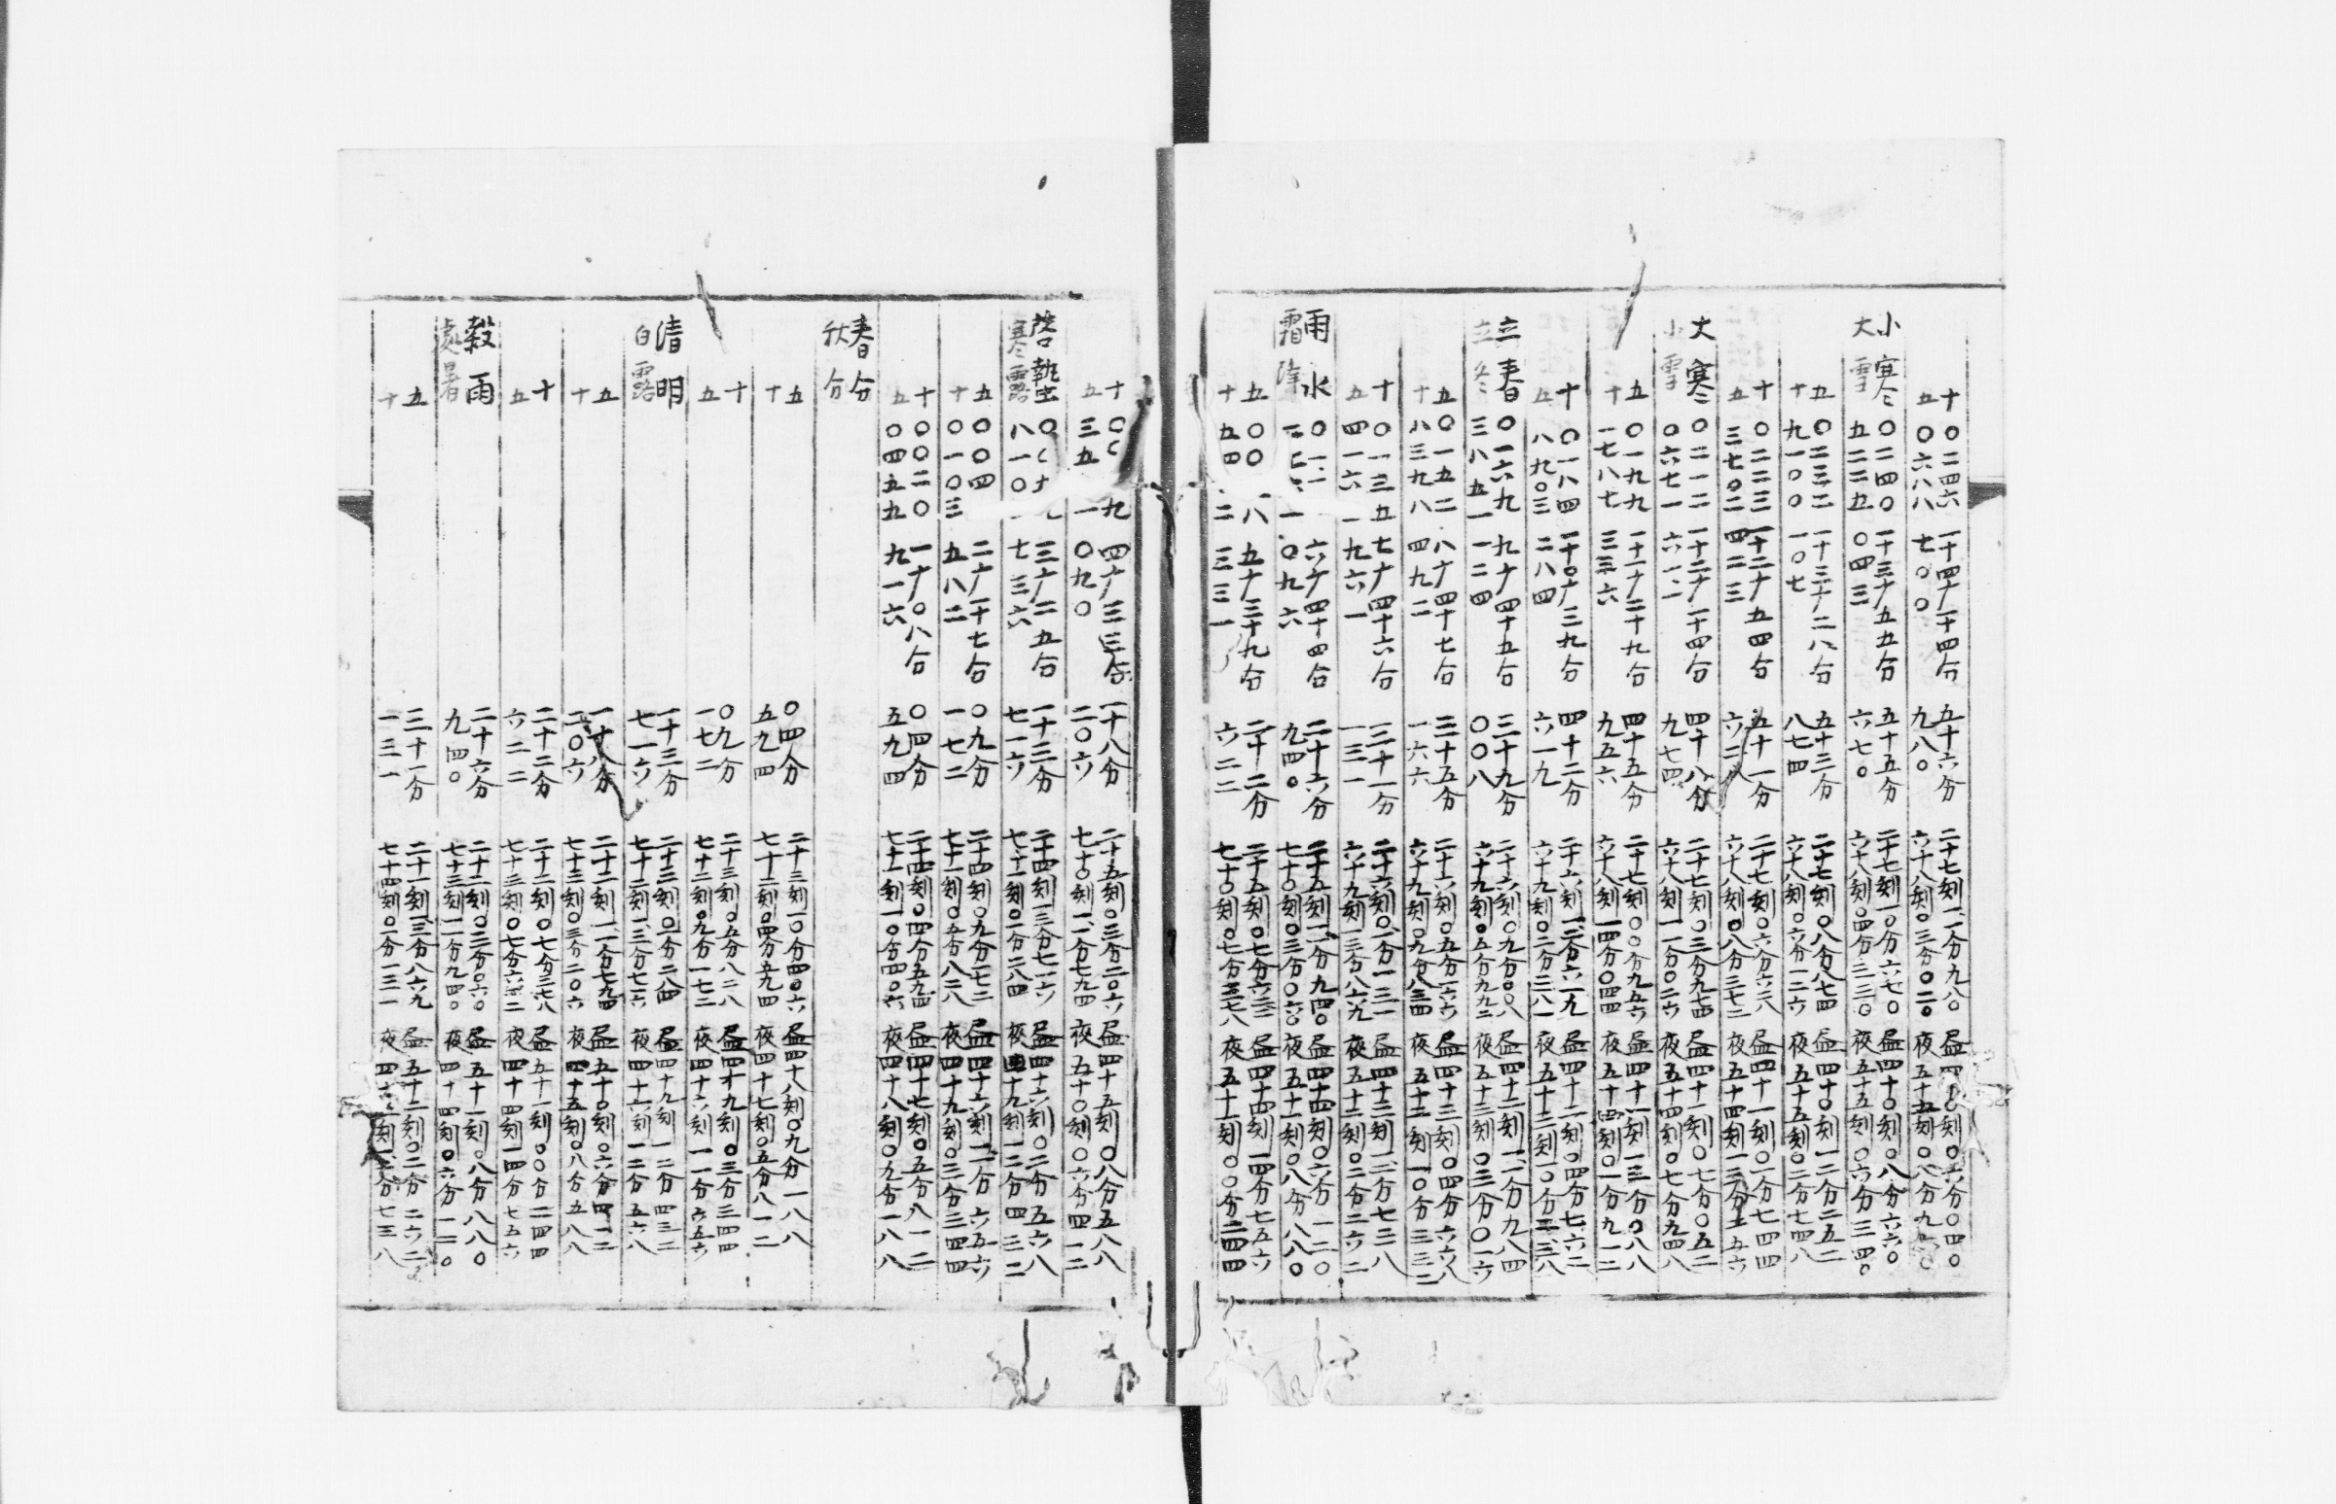 十 〇二四六 一十四廾二十四分 五十六分 二十七刻一二分九八〇 昼四十〇刻〇六分〇四〇
五 〇六八八 七〇〇 九八〇 六十八刻〇三分〇二〇 夜五十五刻〇八分九
小寒 〇二四〇 一十三廾五五分 五十五分 二十七刻一〇分六七〇 昼四十〇刻〇八分六六〇
大雪 五二二五 〇四三 六七〇 六十八刻〇四分三三〇 夜五十五刻〇六分三四〇
五 〇二三二 一十三廾二八分 五十三分 二十七刻〇八分八七四 昼四十〇刻一二分二五二
十 九一〇〇 一〇七 八七四 六十八刻〇六分一二六 夜五十五刻〇二分七四八
十 〇二二三 一十二廾五四分 五十一分 二十七刻〇六分六二八 昼四十一刻〇一分七四四
五 三七〇二 四二三 六二八 六十八刻〇八分三七二 夜五十四刻一三分二五六
大寒 〇二一二 一十二廾二十四分 四十八分 二十七刻〇三分九七四 昼四十一刻〇七分〇五二
小雪 〇六七一 六一二 九七四 六十八刻一一分〇二六 夜五十四刻〇七分九四八
五 〇一九九 一十一廾二十九分 四十五分 二十七刻〇〇分九五六 昼四十一刻一三分〇八八
十 一七八七 三三六 九五六 六十八刻一四分〇四四 夜五十四刻〇一分九一二
十 〇一八四 一十〇廾三九分 四十二分 二十六刻一二分六一九 昼四十二刻〇四分七六二
五 八九〇三 二八四 六一九 六十九刻〇二分三八一 夜五十三刻一〇分二三八
立春 〇一六九 九廾四十五分 三十九分 二十六刻〇九分〇〇八 昼四十二刻一一分九八四
立冬 三八五一 一二四 〇〇八 六十九刻〇五分九九二 夜五十三刻〇三分〇一六
五 〇一五二 八廾四十七分 三十五分 二十六刻〇五分一六六 昼四十三刻〇四分六六八
十 八三九八 四九二 一六六 六十九刻〇九分八三四 夜五十二刻一〇分三三二
十 〇一三五 七廾四十六分 三十一分 二十六刻〇一分一三一 昼四十三刻一二分七三八
五 四一六一 九六一 一三一 六十九刻一三分八六九 夜五十二刻〇二分二六二
雨水 六廾四十四分 二十六分 二十五刻一一分九四〇 昼四十四刻〇六分一二〇
霜降 〇九六 九四〇 七十〇刻〇三分〇六〇 夜五十一刻〇八分八八〇
五 〇〇 八 五廾三十九分 二十二分 二十五刻〇七分六二二 昼四十四刻一四分七五六
十 五四 二 三三一 六二二 七十〇刻〇七分三七八 夜五十一刻〇〇分二四四
十 九 四廾三三分 一十八分 二十五刻〇三分二〇六 昼四十五刻〇八分五八八
五 三五 一 〇九〇 二〇六 七十〇刻一一分七九四 夜五十〇刻〇六分四一二
啓蟄 三廾二五分 一十三分 二十四刻一三分七一六 昼四十六刻〇二分五六八
寒露 八一〇 七三六 七一六 七十一刻〇一分二八四 夜四十九刻一二分四三二
五 〇〇四 二廾一十七分 〇九分 二十四刻〇九分一七二 昼四十六刻一一分六五六
十 〇一〇三 五八二 一七二 七十一刻〇五分八二八 夜四十九刻〇三分三四四
十 〇〇二〇 一廾〇八分 〇四分 二十四刻〇四分五九四 昼四十七刻〇五分八一二
五 〇四五九 九一六 五九四 七十一刻一〇分四〇六 夜四十八刻〇九分一八八
春分
秋分
五 〇四分 二十三刻一〇分四〇六 昼四十八刻〇九分一八八
十 五九四 七十二刻〇四分五九四 夜四十七刻〇五分八一二
十 〇九分 二十三刻〇五分八二八 昼四十九刻〇三分三四四
五 一七二 七十二刻〇九分一七二 夜四十六刻一一分六五六
清明 一十三分 二十三刻〇一分二八四 昼四十九刻一二分四三二
白露 七一六 七十二刻一三分七一六 夜四十六刻〇二分五六八
五 一十八分 二十二刻一一分七九四 昼五十〇刻〇六分四一二
十 二〇六 七十三刻〇三分二〇六 夜四十五刻〇八分五八八
十 二十二分 二十二刻〇七分三七八 昼五十一刻〇〇分二四四
五 六二二 七十三刻〇七分六二二 夜四十四刻一四分七五六
穀雨 二十六分 二十二刻〇三分〇六〇 昼五十一刻〇八分八八〇
處暑 九四〇 七十三刻一一分九四〇 夜四十四刻〇六分一二〇
五 三十一分 二十一刻一三分八六九 昼五十二刻〇二分二六二
十 一三一 七十四刻〇一分一三一 夜四十三刻一二分七三八